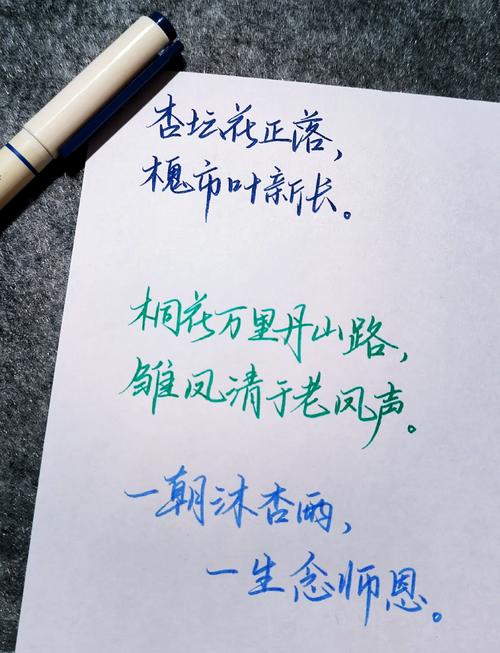 杏坛花正落，
槐市叶新长。
桐花万里丹山路，
雏凤清于老凤声。
一朝沐杏雨，
一生念师恩。